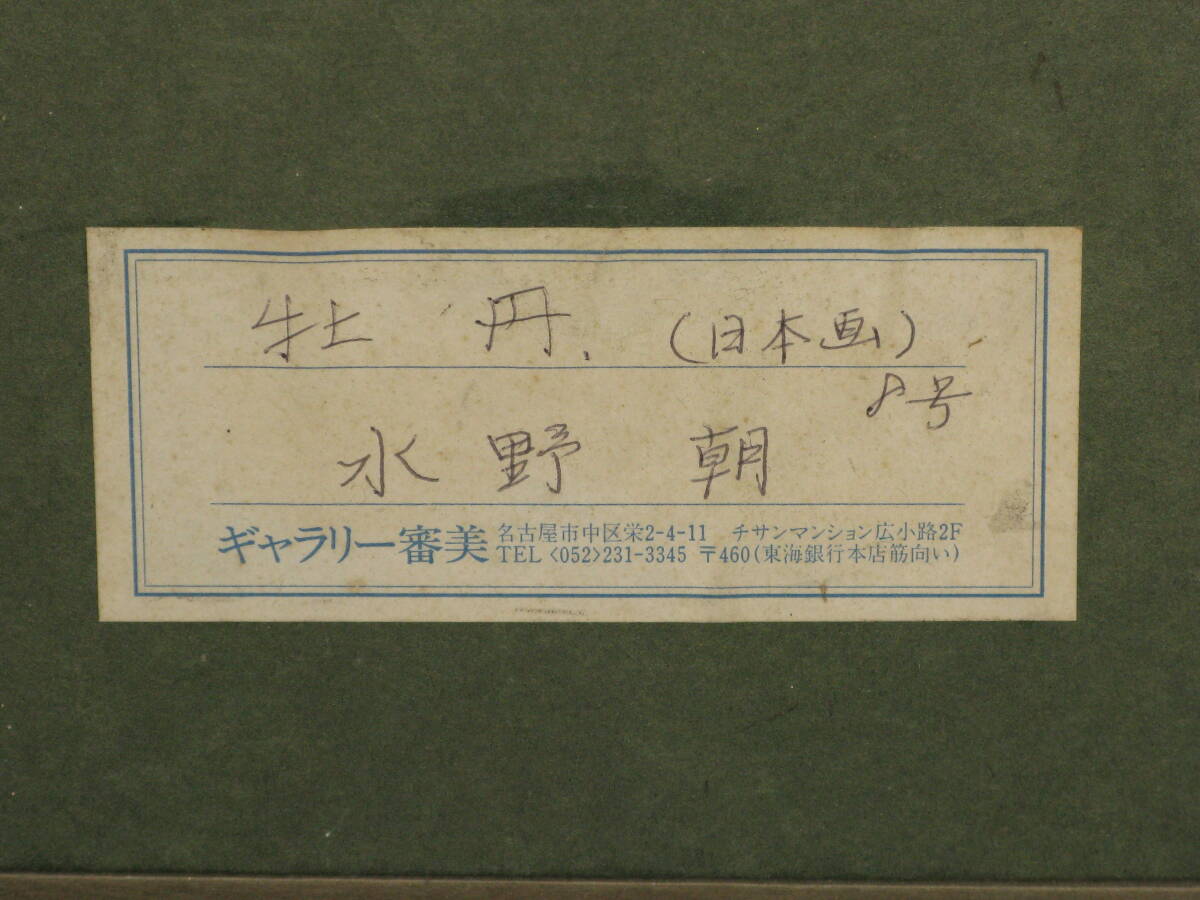 牡丹.（日本画）
8号
水野 朝
ギャラリー審美
名古屋市中区栄2-4-11 チサンマンション広小路2F
TEL〈052〉231-3345 〒460(東海銀行本店筋向い)